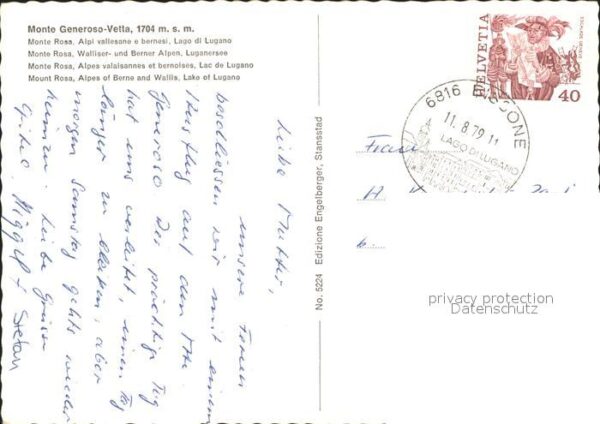 Monte Generoso-Vetta, 1704 m. s. m.
Monte Rosa, Alpi vallesane e bernesi, Lago di Lugano
Monte Rosa, Walliser- und Berner Alpen, Luganersee
Monte Rosa, Alpes valaisannes et bernoises, Lac de Lugano
Mount Rosa, Alpes of Berne and Wallis, Lake of Lugano
Liebe Mutter,
unsere Ferien
beschliessen wir mit einem
Ausflug auf den Mte.
Generoso. Der prächtige Tag
hat uns verleitet, einen Tag
länger zu bleiben, aber
morgen Samstag gehts wieder
heimzu. Liebe Grüsse
Stefan
No. 5224 Edizione Engelberger, Stansstad
HELVETIA
40
6816 BISSONE
11.8.79 11
LAGO DI LUGANO
Frau
H.
privacy protection
Datenschutz